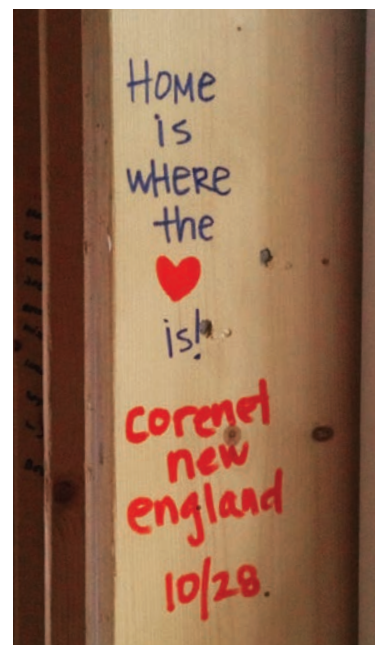 HOME
is
wHERE
the
♥
is!
corenet
new
england
10/28.